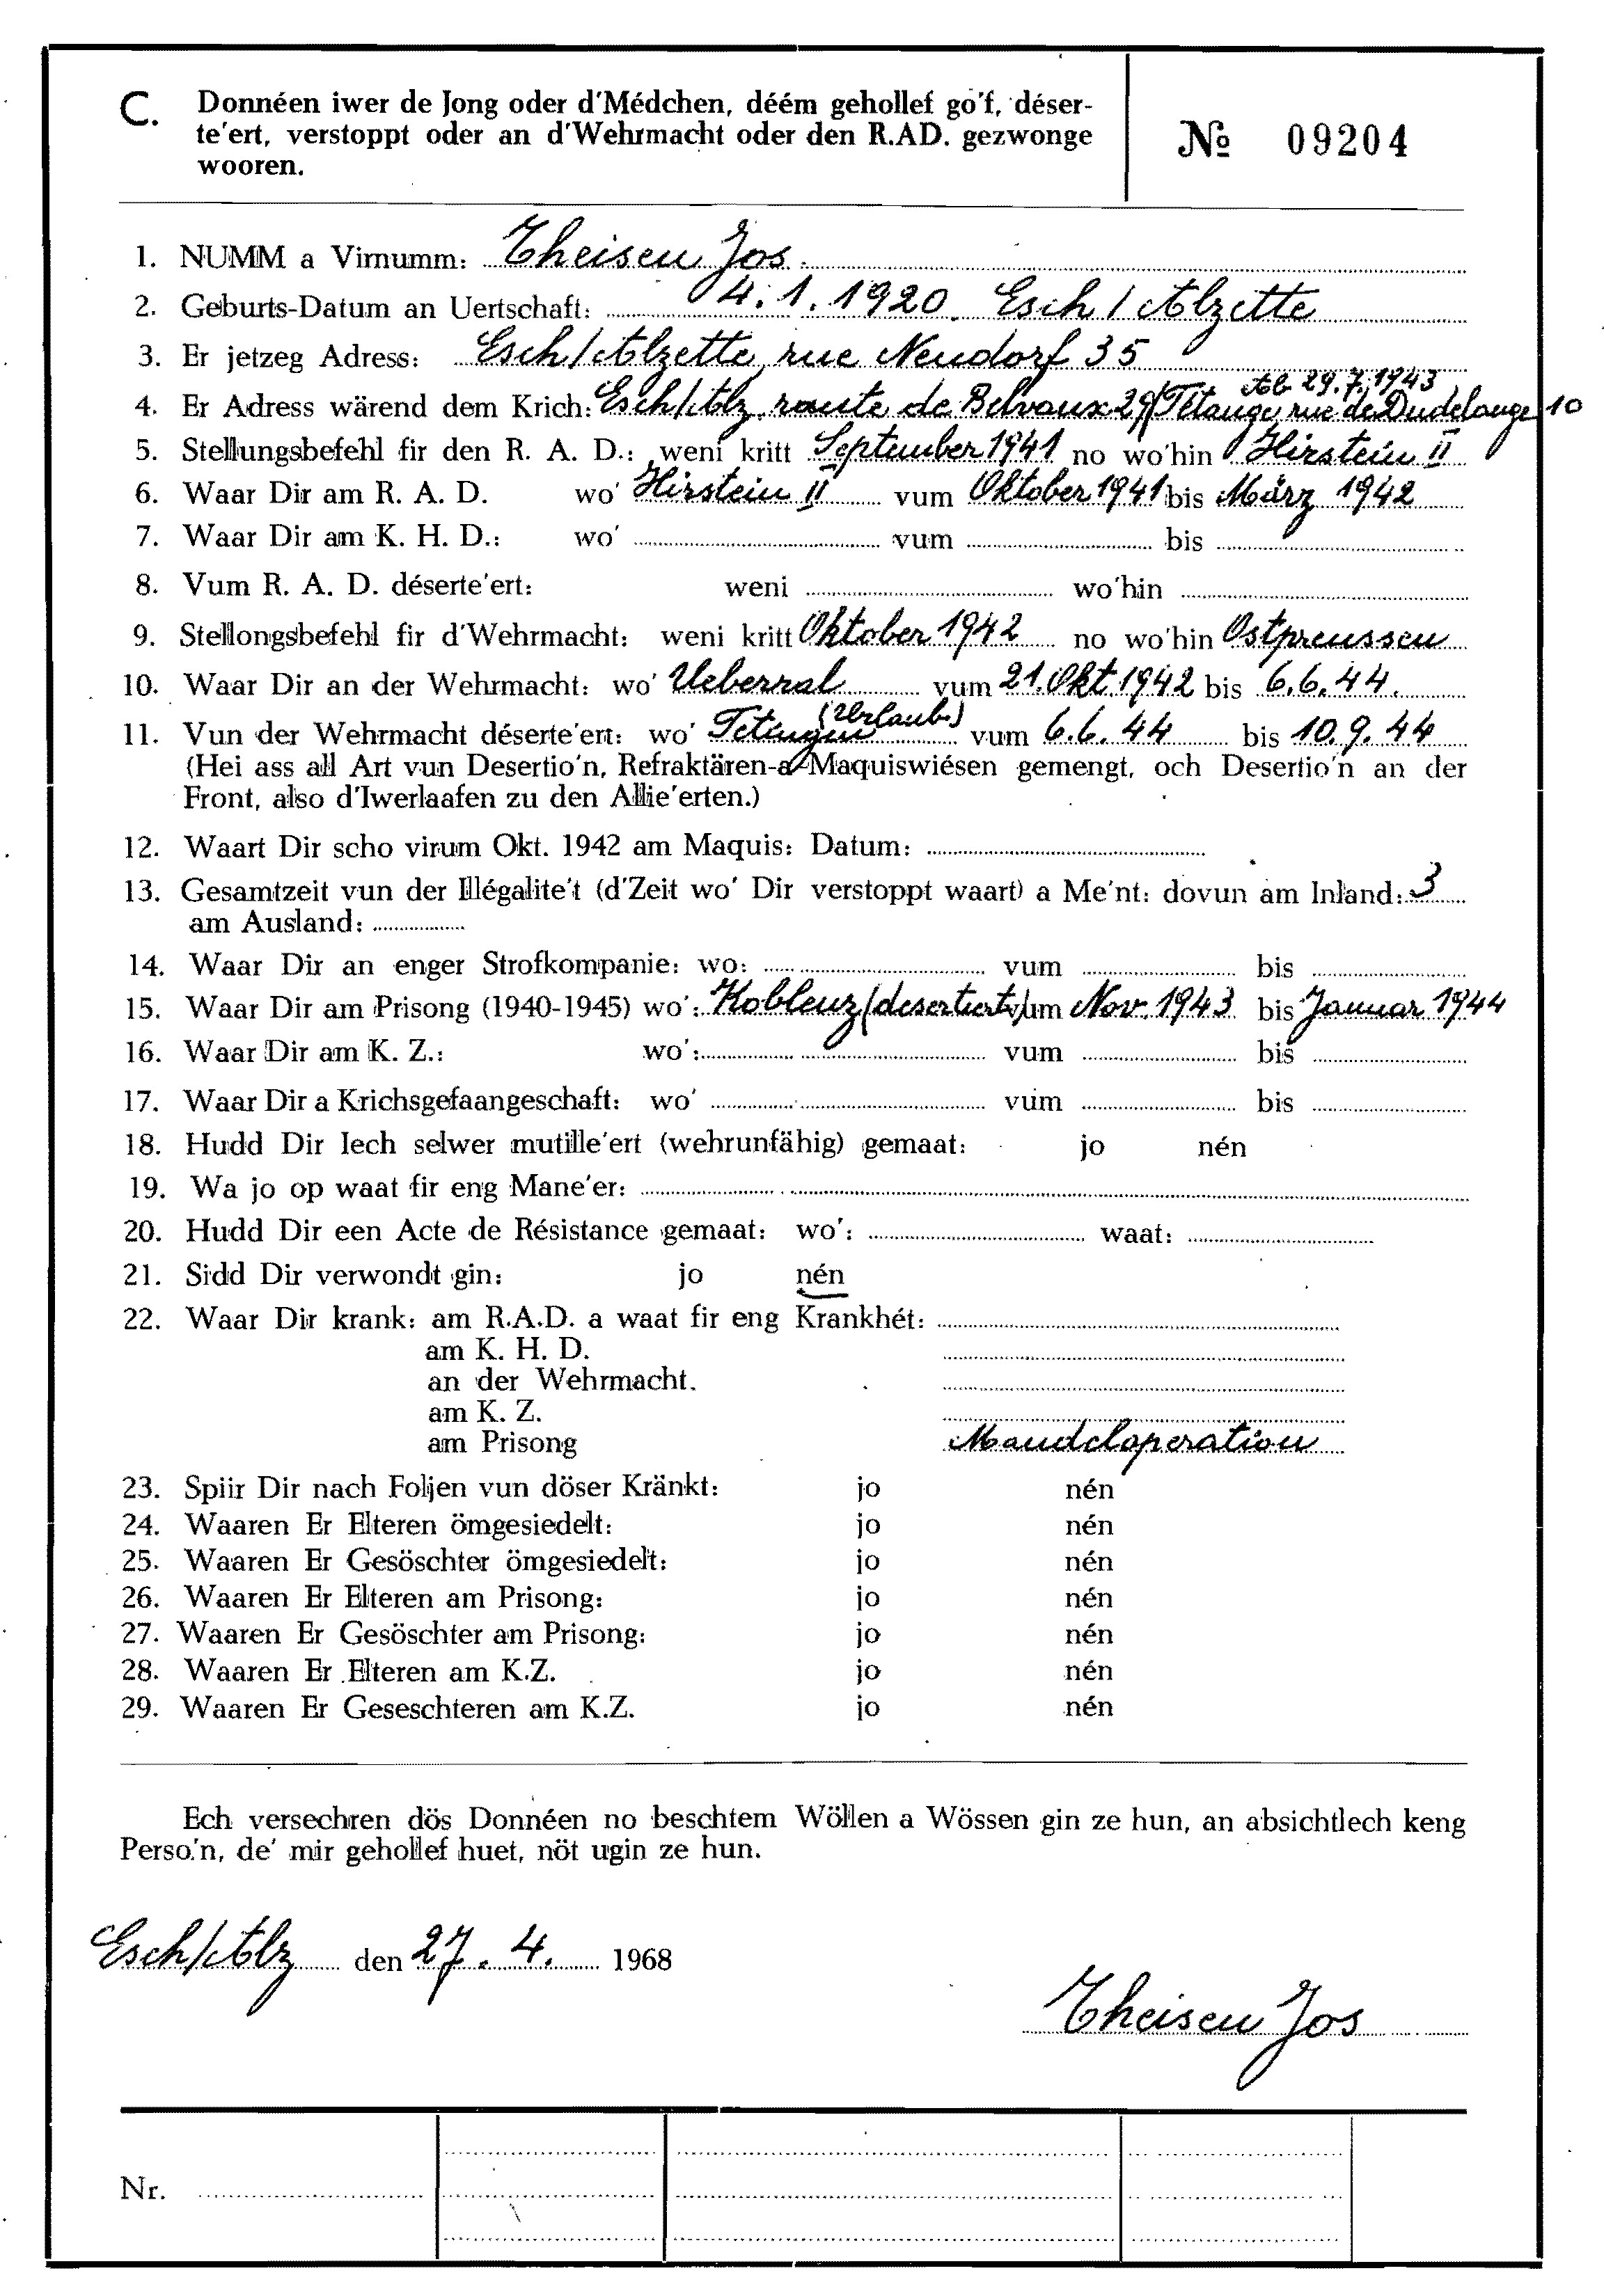 C. Donnéen iwer de Jong oder d'Médchen, déém gehollef go'f, déser-
te'ert, verstoppt oder an d'Wehrmacht oder den R.AD. gezwonge
wooren.
№ 09204
1. NUMM a Virnumm: Theisen Jos.
2. Geburts-Datum an Uertschaft: 4.1.1920. Esch/Alzette
3. Er jetzeg Adress: Esch/Alzette, rue Neudorf 35
Ab 29.7.1943
4. Er Adress wärend dem Krich: Esch/Alz, route de Belvaux 29/Tétange, rue de Dudelange 10
5. Stellungsbefehl fir den R. A. D.: weni kritt September 1941 no wo'hin Hirstein II
6. Waar Dir am R. A. D. wo' Hirstein II vum Oktober 1941 bis März 1942
7. Waar Dir am K. H. D.: wo' vum bis
8. Vum R. A. D. déserte'ert: weni wo'hin
9. Stellongsbefehl fir d'Wehrmacht: weni kritt Oktober 1942 no wo'hin Ostpreussen
10. Waar Dir an der Wehrmacht: wo' Ueberral vum 21. Okt. 1942 bis 6.6.44.
(Urlaub)
11. Vun der Wehrmacht déserte'ert: wo' Tetingen vum 6.6.44 bis 10.9.44
(Hei ass all Art vun Desertio'n, Refraktären-a Maquiswiésen gemengt, och Desertio'n an der
Front, also d'Iwerlaafen zu den Allie'erten.)
12. Waart Dir scho virum Okt. 1942 am Maquis: Datum:
13. Gesamtzeit vun der Illégalite't (d'Zeit wo' Dir verstoppt waart) a Me'nt: dovun am Inland: 3
am Ausland:
14. Waar Dir an enger Strofkompanie: wo: vum bis
15. Waar Dir am Prisong (1940-1945) wo': Koblenz (desertiert) vum Nov. 1943 bis Januar 1944
16. Waar Dir am K. Z.: wo': vum bis
17. Waar Dir a Krichsgefaangeschaft: wo' vum bis
18. Hudd Dir Iech selwer mutille'ert (wehrunfähig) gemaat: jo nén
19. Wa jo op waat fir eng Mane'er:
20. Hudd Dir een Acte de Résistance gemaat: wo': waat:
21. Sidd Dir verwondt gin: jo nén
22. Waar Dir krank: am R.A.D. a waat fir eng Krankhét:
am K. H. D.
an der Wehrmacht.
am K. Z.
am Prisong Mandeloperation
23. Spiir Dir nach Foljen vun döser Kränkt: jo nén
24. Waaren Er Elteren ömgesiedelt: jo nén
25. Waaren Er Gesöschter ömgesiedelt: jo nén
26. Waaren Er Elteren am Prisong: jo nén
27. Waaren Er Gesöschter am Prisong: jo nén
28. Waaren Er Elteren am K.Z. jo nén
29. Waaren Er Geseschteren am K.Z. jo nén
Ech versechren dös Donnéen no beschtem Wöllen a Wössen gin ze hun, an absichtlech keng
Perso'n, de' mir gehollef huet, nöt ugin ze hun.
Esch/Alz den 27.4. 1968
Theisen Jos
Nr.